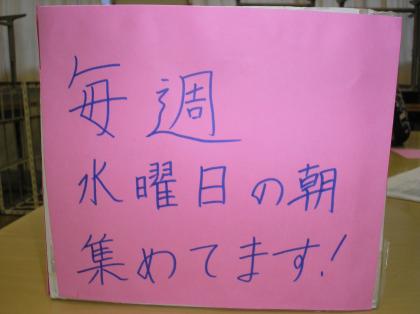 毎週
水曜日の朝
集めてます!